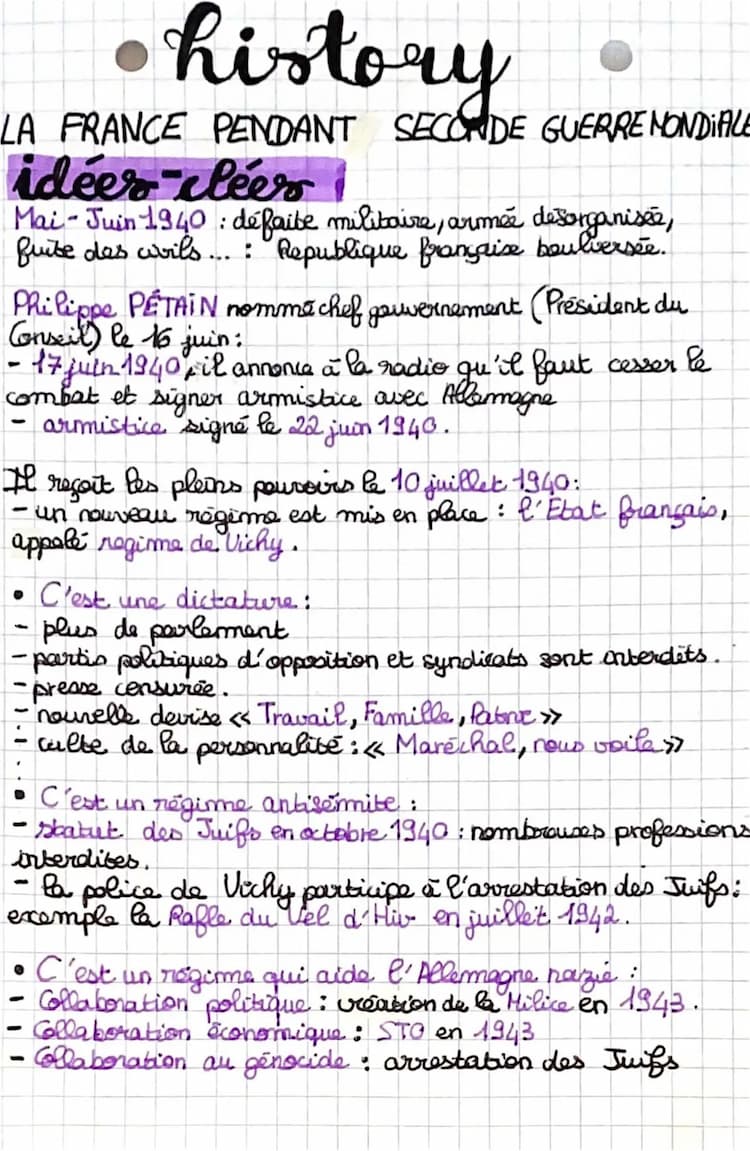 history
LA FRANCE PENDANT SECONDE GUERRE MONDIALE
idées-clées
Mai-Juin 1940 : défaite militaire, armée désorganisée,
fuite des civils... : République française boulversée.
Philippe PÉTAIN nommé chef gouvernement (Président du
Conseil) le 16 juin:
- 17 juin 1940, il annonce à la radio qu'il faut cesser le
combat et signer armistice avec Allemagne
- armistice signé le 22 juin 1940.
Il reçoit les pleins pouvoirs le 10 juillet 1940:
- un nouveau régime est mis en place : l'État français,
appelé regime de Vichy.
• C'est une dictature :
- plus de parlement
- partis politiques d'opposition et syndicats sont interdits.
- presse censurée.
- nouvelle devise << Travail, Famille, Patrie >>
- culte de la personnalité : << Maréchal, nous voila >>
• C'est un régime antisémite :
- statut des Juifs en octobre 1940 : nombreuses professions
interdites.
- la police de Vichy participe à l'arrestation des Juifs :
exemple la Rafle du Vel d'Hiv en juillet 1942.
• C'est un régime qui aide l'Allemagne nazie :
- Collaboration politique : création de la Milice en 1943.
- Collaboration économique : STO en 1943
- Collaboration au génocide : arrestation des Juifs